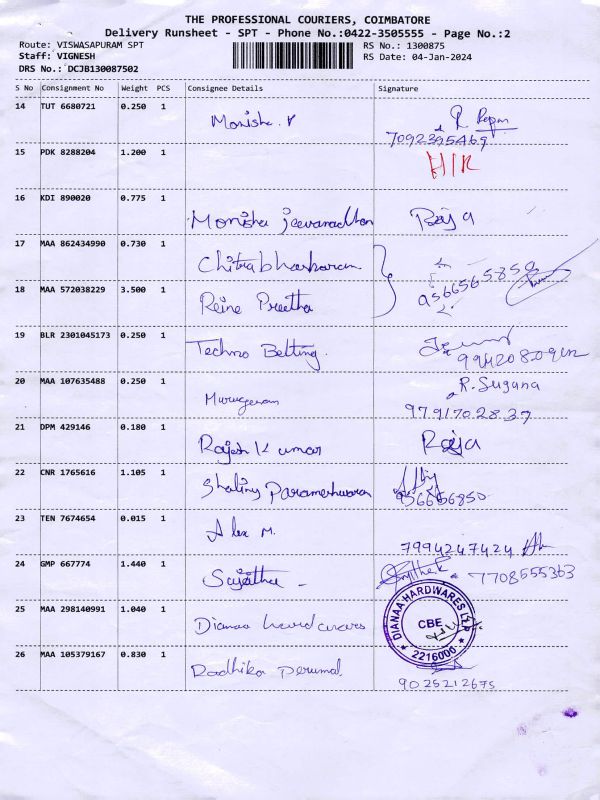 THE PROFESSIONAL COURIERS, COIMBATORE
Delivery Runsheet - SPT - Phone No.:0422-3505555 - Page No.:2
Route: VISWASAPURAM SPT RS No.: 1300875
Staff: VIGNESH RS Date: 04-Jan-2024
DRS No.: DCJB130087502
S No Consignment No Weight PCS Consignee Details Signature
14 TUT 6680721 0.250 1 Monisha. V R Rajan
7092395469
15 PDK 8288204 1.200 1 H/R
16 KDI 890020 0.775 1 Monisha Jeevanadhan Raja
17 MAA 862434990 0.730 1 Chitrabhaskaran
18 MAA 572038229 3.500 1 Reine Preetha 9566565850
19 BLR 2301045173 0.250 1 Techno Belting.
20 MAA 107635488 0.250 1 Murugesan R. Sugana
9791702837
21 DPM 429146 0.180 1 Rajesh Kumar Raja
22 CNR 1765616 1.105 1 Shaliny Parameshwaran
23 TEN 7674654 0.015 1 Alex M. 7994247424
24 GMP 667774 1.440 1 Sujitha - 7708555363
25 MAA 298140991 1.040 1 Dianaa hardwares DIANAA HARDWARES
CBE
2216000
26 MAA 105379167 0.830 1 Radhika Perumal.
9025212675